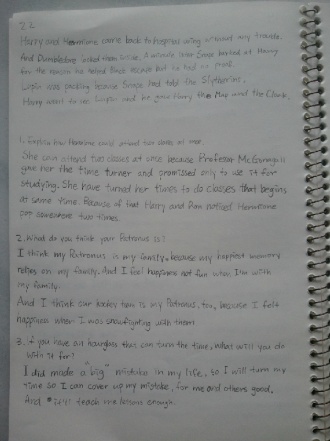 22
Harry and Hermione came back to hospital wing without any trouble.
And Dumbledore locked them inside. A minute later Snape barked at Harry
for the reason he helped Black escape but he had no proof.
Lupin was packing because Snape had told the Slytherins.
Harry went to see Lupin and he gave Harry the Map and the Cloak.
1. Explain how Hermione could attend two classes at once.
She could attend two classes at once because Professor McGonagall
gave her the time turner and promised only to use it for
studying. She have turned her times to do classes that begins
at same time. Because of that Harry and Ron noticed Hermione
pop somewhere two times.
2. What do you think your Patronus is?
I think my Patronus is my family, because my happiest memory
relies on my family. And I feel happiness not fun when I'm with
my family.
And I think our teacher is my Patronus, too, because I felt
happiness when I was snowfighting with them
3. if you have an hourglass that can turn the time, what will you do
with it for?
I did made a "big" mistake in my life. so I will turn my
time so I can cover up my mistake, for me and others good.
And it'll teach me lesson enough.